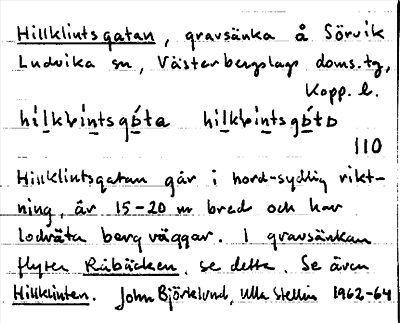 Hillklintsgatan, gravsänka å Sörvik
Ludvika sn, Västerbergslags doms.tg,
Kopp. l.
110
Hillklintsgatan går i nord-sydlig rikt-
ning, är 15-20 m bred och har
lodräta bergväggar. I gravsänkan
flyter Råbäcken, se detta. Se även
Hillklinten. John Björklund, Ulla Stellin 1962-64